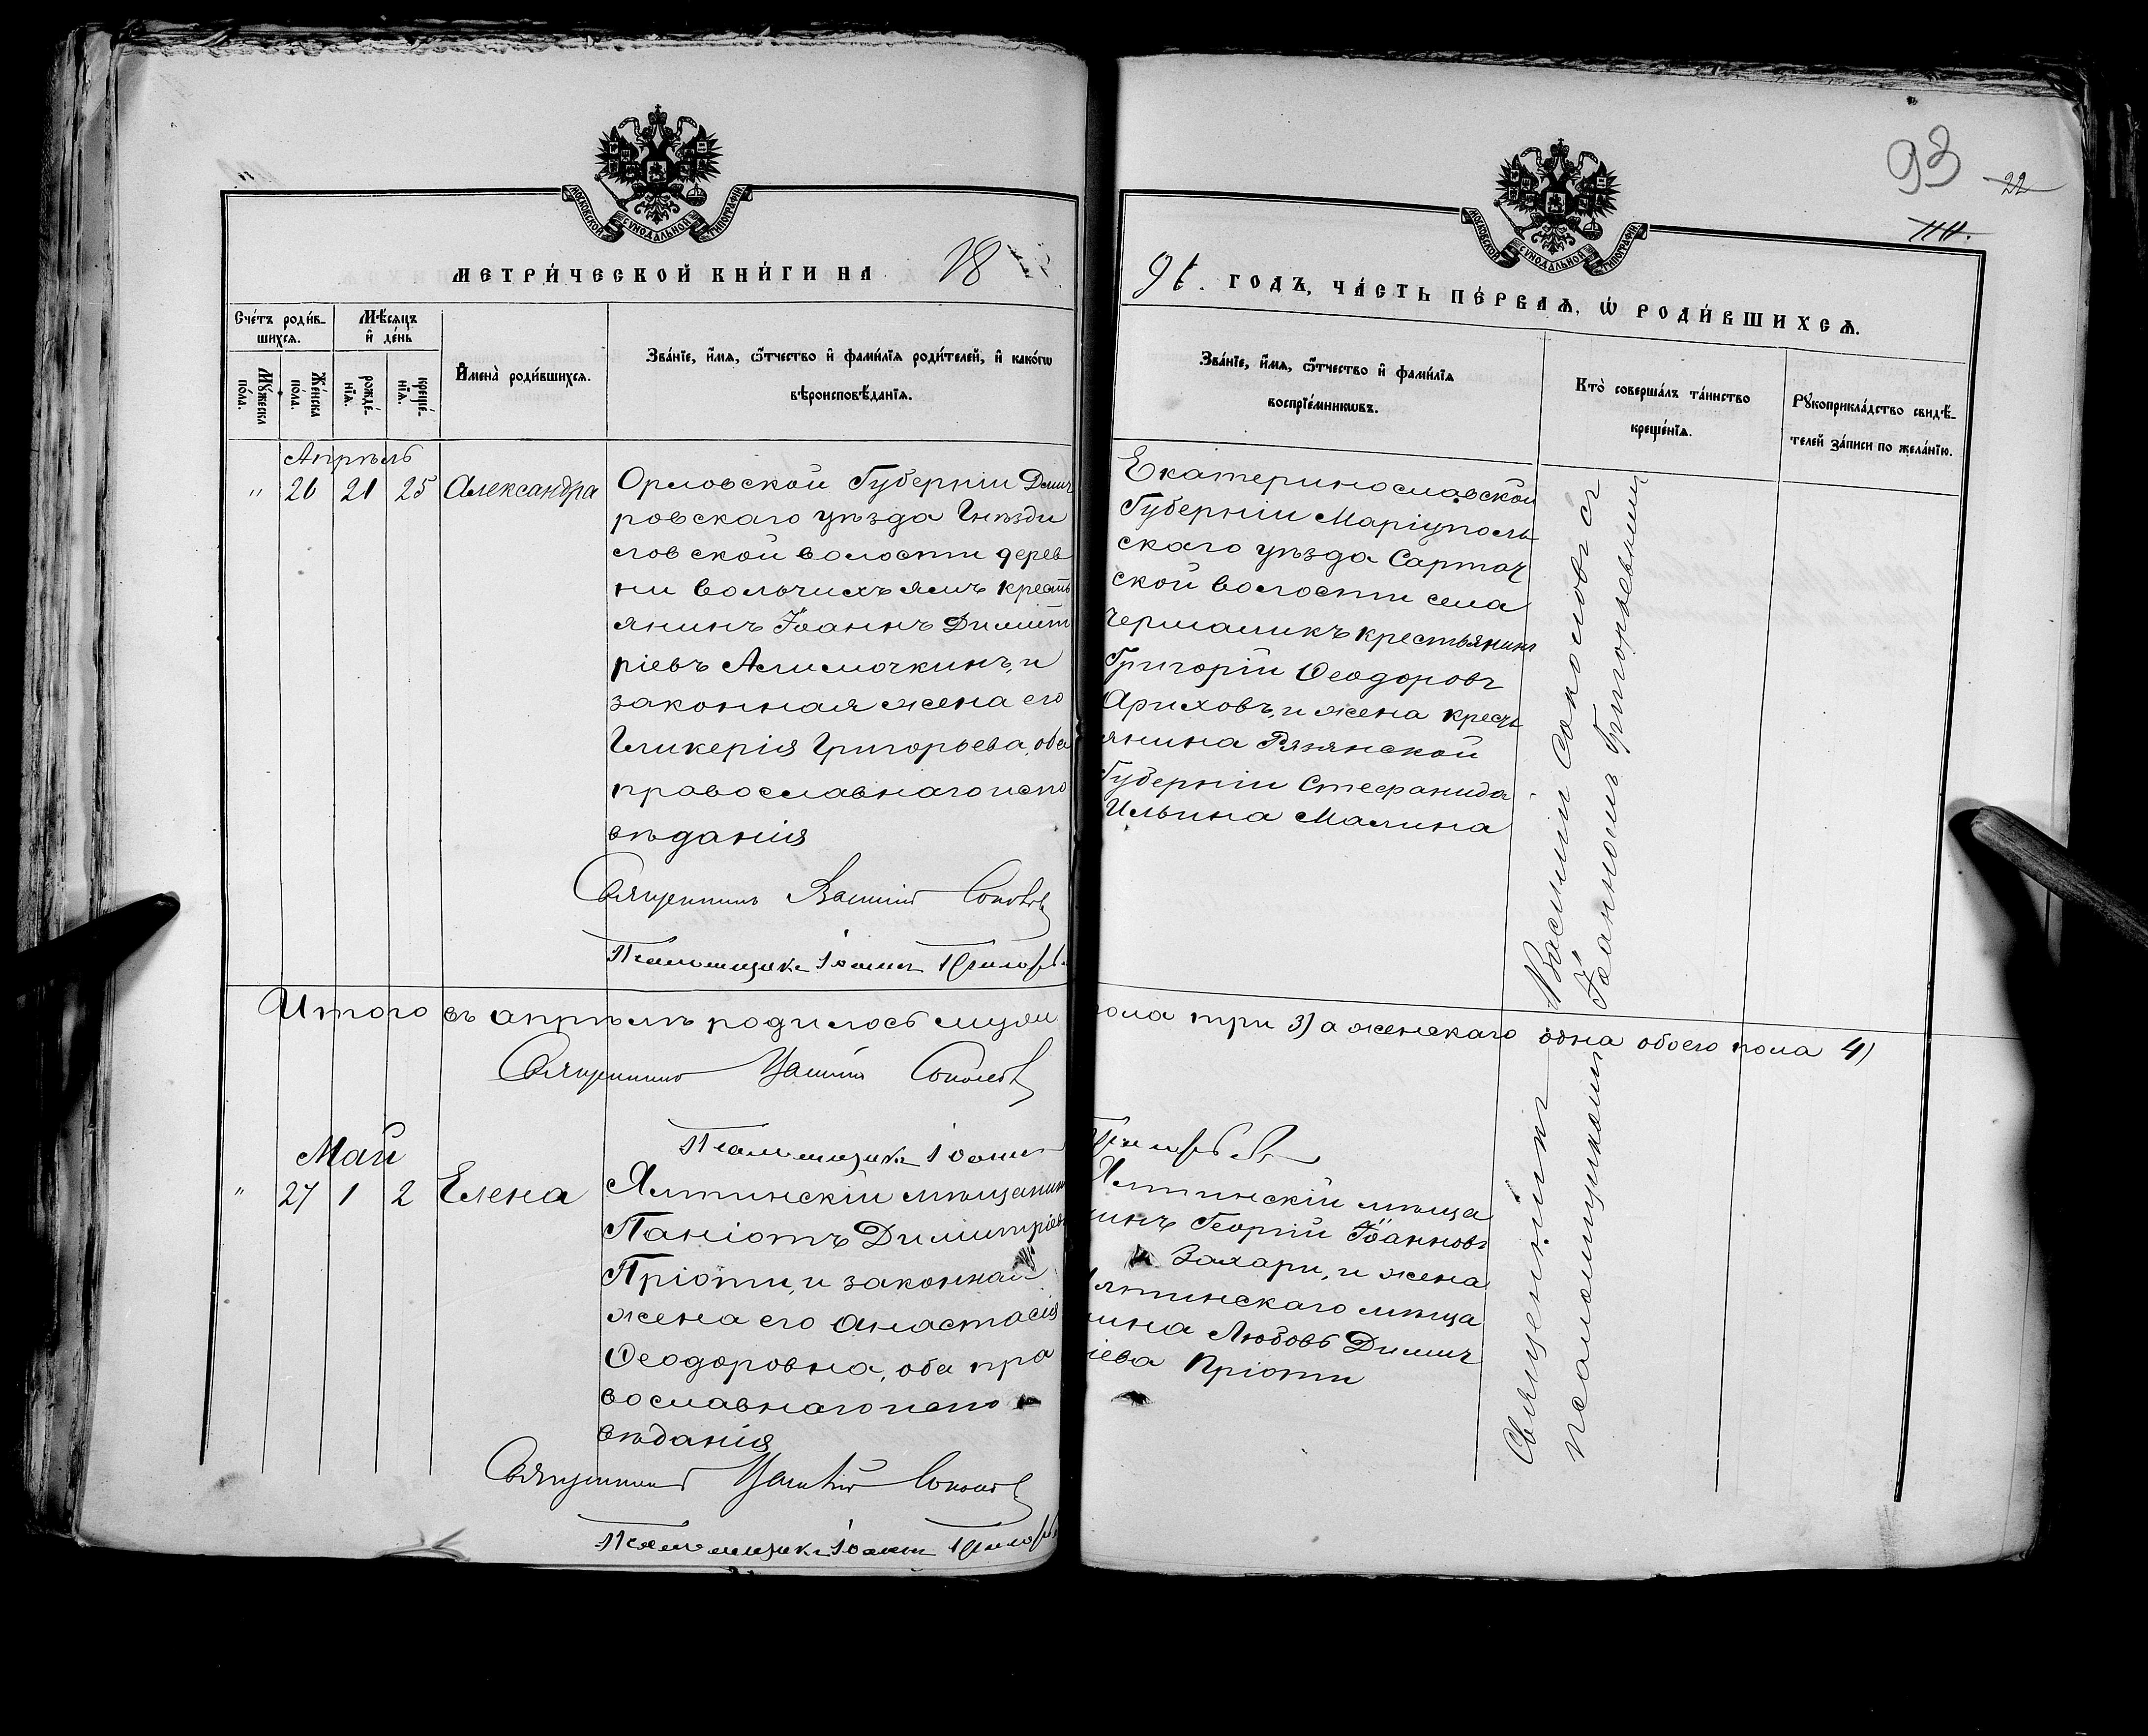 93
22
МОСКОВСКОЙ СУНОДАЛЬНОЙ ТИПОГРАФІИ
МОСКОВСКОЙ СУНОДАЛЬНОЙ ТИПОГРАФІИ
МЕТРИ́ЧЕСКОЙ КНИ́ГИ НА 18
9 ГОДЪ, ЧА́СТЬ ПЕ́РВАѦ, Ѡ РОДИ́ВШИХСѦ.
Сче́тъ роди́в-
шихсѧ.
Мꙋ́жеска
по́ла.
Же́нска
по́ла.
Мѣ́сѧцъ
и҆ де́нь
рожде́-
нїѧ.
креще́-
нїѧ.
И҆мена̀ роди́вшихсѧ.
Зва́нїе, и҆́мѧ, ѻ҆́тчество и҆ фами́лїѧ роди́телей, и҆ како́гѡ
вѣроисповѣ́данїѧ.
Зва́нїе, и҆́мѧ, ѻ҆́тчество и҆ фами́лїѧ
воспрїе́мникѡвъ.
Кто̀ соверша́лъ та́инство
креще́нїѧ.
Рꙋкоприкла́дство свидѣ́-
телей за́писи по жела́нїю.
Апрѣль
" 26 21 25 Александра
Орловской Губерніи Дмит
ровскаго уѣзда Гнѣзди
ловской волости дерев
ни Вольчихъ ямъ кресть
янинъ Іоаннъ Димит
ріевъ Алимочкинъ, и
законная жена его
Гликерія Григорьева, оба
православнаго испо
вѣданія
Священникъ Василій Соколовъ
Псаломщикъ Іоаннъ Григорьевъ
Екатеринославской
Губерніи Маріуполь
скаго уѣзда Сартан
ской волости села
Чермаликъ крестьянинъ
Григорій Ѳеодоровъ
Ариховъ, и жена крестъ
янина Рязанской
Губерніи Стефанида
Ильина Малина
Священникъ Василій Соколовъ съ
псаломщикомъ Іоанномъ Григорьевымъ
Итого въ апрѣлѣ родилось муж
пола три 3) а женскаго одна обоего пола 4)
Священникъ Василій Соколовъ
Псаломщикъ Іоаннъ Григорьевъ
Май
" 27 1 2 Елена
Ялтинскій мѣщанинъ
Паніотъ Димитріевъ
Пріоти, и законная
жена его Анастасія
Ѳеодоровна, оба пра
вославнаго испо
вѣданія
Священникъ Василій Соколовъ
Псаломщикъ Іоаннъ Григорьевъ
Ялтинскій мѣща
нинъ Георгій Іоанновъ
Захари, и жена
Ялтинскаго мѣща
нина Любовь Димит
ріева Пріоти